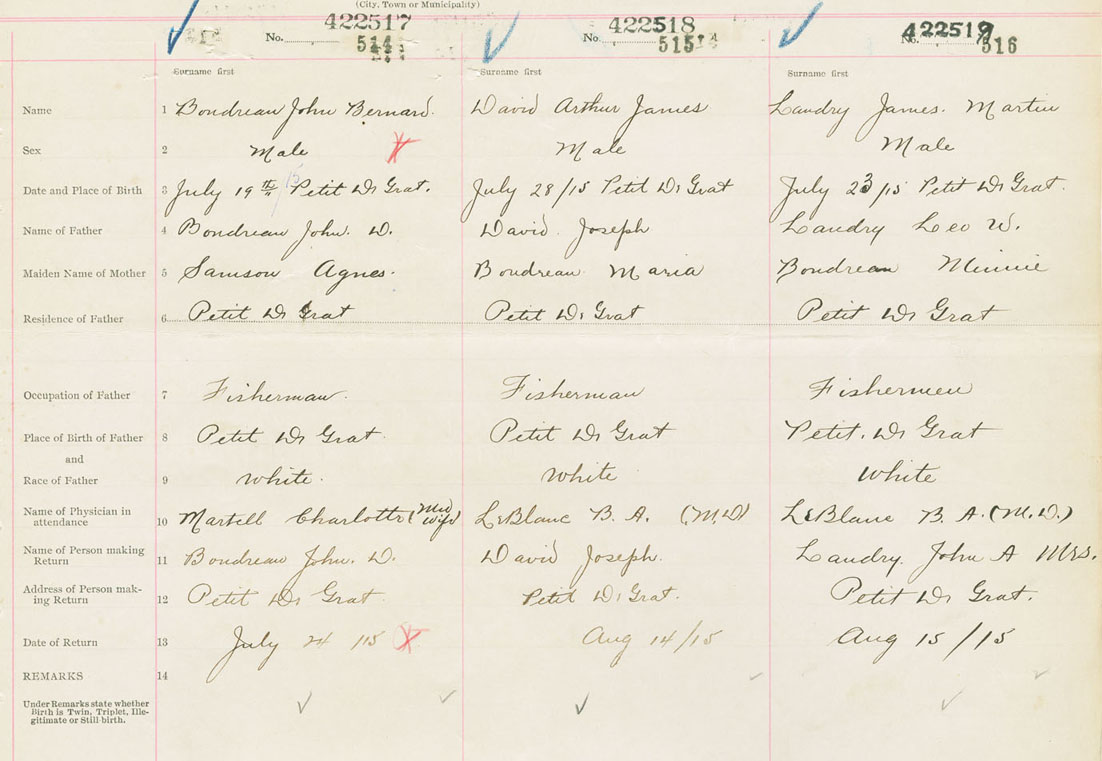 (City, Town or Municipality)
No. 422517 514
No. 422518 515
No. 422519 516
Surname first Surname first Surname first
Name 1 Bondreau John Bernard. David Arthur James Landry James. Martin
Sex 2 Male Male Male
Date and Place of Birth 3 July 19th 15 Petit De Grat. July 28/15 Petit De Grat July 23/15 Petit De Grat.
Name of Father 4 Bondreau John. D. David Joseph Landry Leo W.
Maiden Name of Mother 5 Samson Agnes. Bondreau Maria Bondreau Minnie
Residence of Father 6 Petit De Grat Petit De Grat Petit De Grat
Occupation of Father 7 Fisherman. Fisherman Fishermen
Place of Birth of Father 8 Petit De Grat Petit De Grat Petit. De Grat
and
Race of Father 9 White. White White
Name of Physician in
attendance 10 Martell Charlotte (Mid wife) LeBlanc B. A. (M.D) LeBlanc B. A. (M.D.)
Name of Person making
Return 11 Bondreau John. D. David Joseph. Landry. John A Mrs.
Address of Person mak-
ing Return 12 Petit De Grat. Petit De Grat. Petit De Grat.
Date of Return 13 July 24 /15 Aug 14/15 Aug 15/15
REMARKS 14
Under Remarks state whether
Birth is Twin, Triplet, Ille-
gitimate or Still birth.